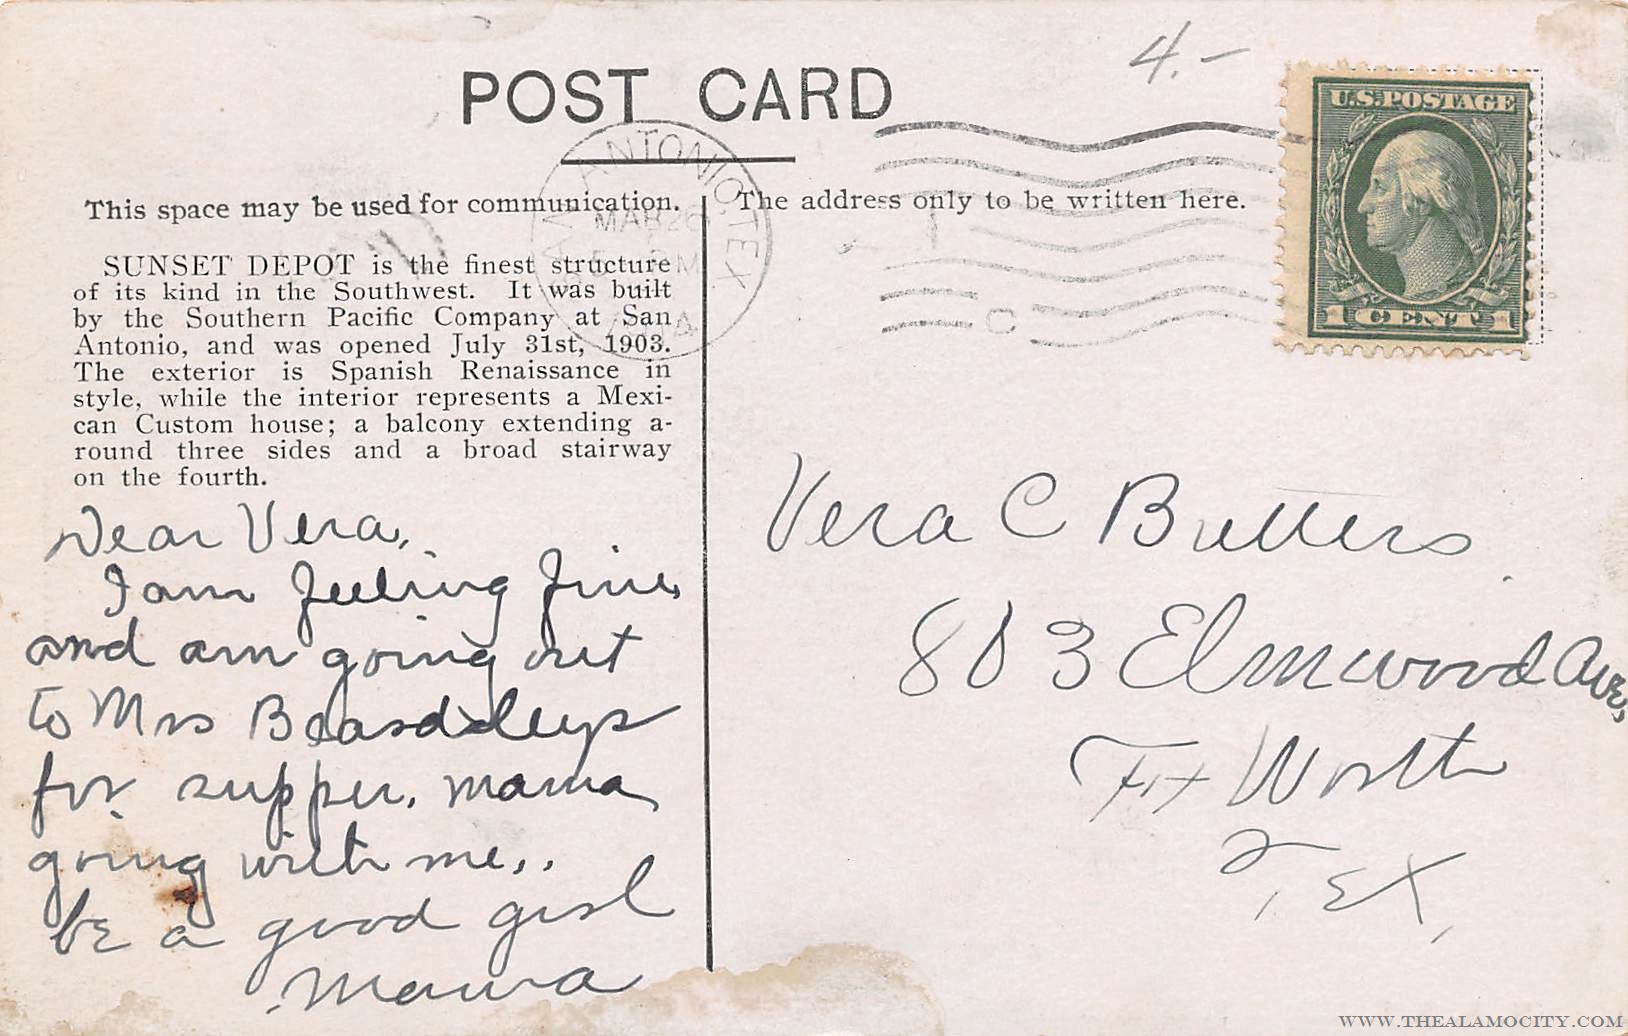 4.-
POST CARD
U.S. POSTAGE
1 CENT 1
SAN ANTONIO, TEX.
MAR 26
This space may be used for communication.
The address only to be written here.
SUNSET DEPOT is the finest structure
of its kind in the Southwest. It was built
by the Southern Pacific Company at San
Antonio, and was opened July 31st, 1903.
The exterior is Spanish Renaissance in
style, while the interior represents a Mexi-
can Custom house; a balcony extending a-
round three sides and a broad stairway
on the fourth.
Dear Vera,
I am feeling fine,
and am going out
to Mrs Beardsleys
for supper. mama
going with me..
be a good girl
Mama
Vera C Butters
803 Elmwood Ave,
Ft Worth
Tex,
WWW.THEALAMOCITY.COM